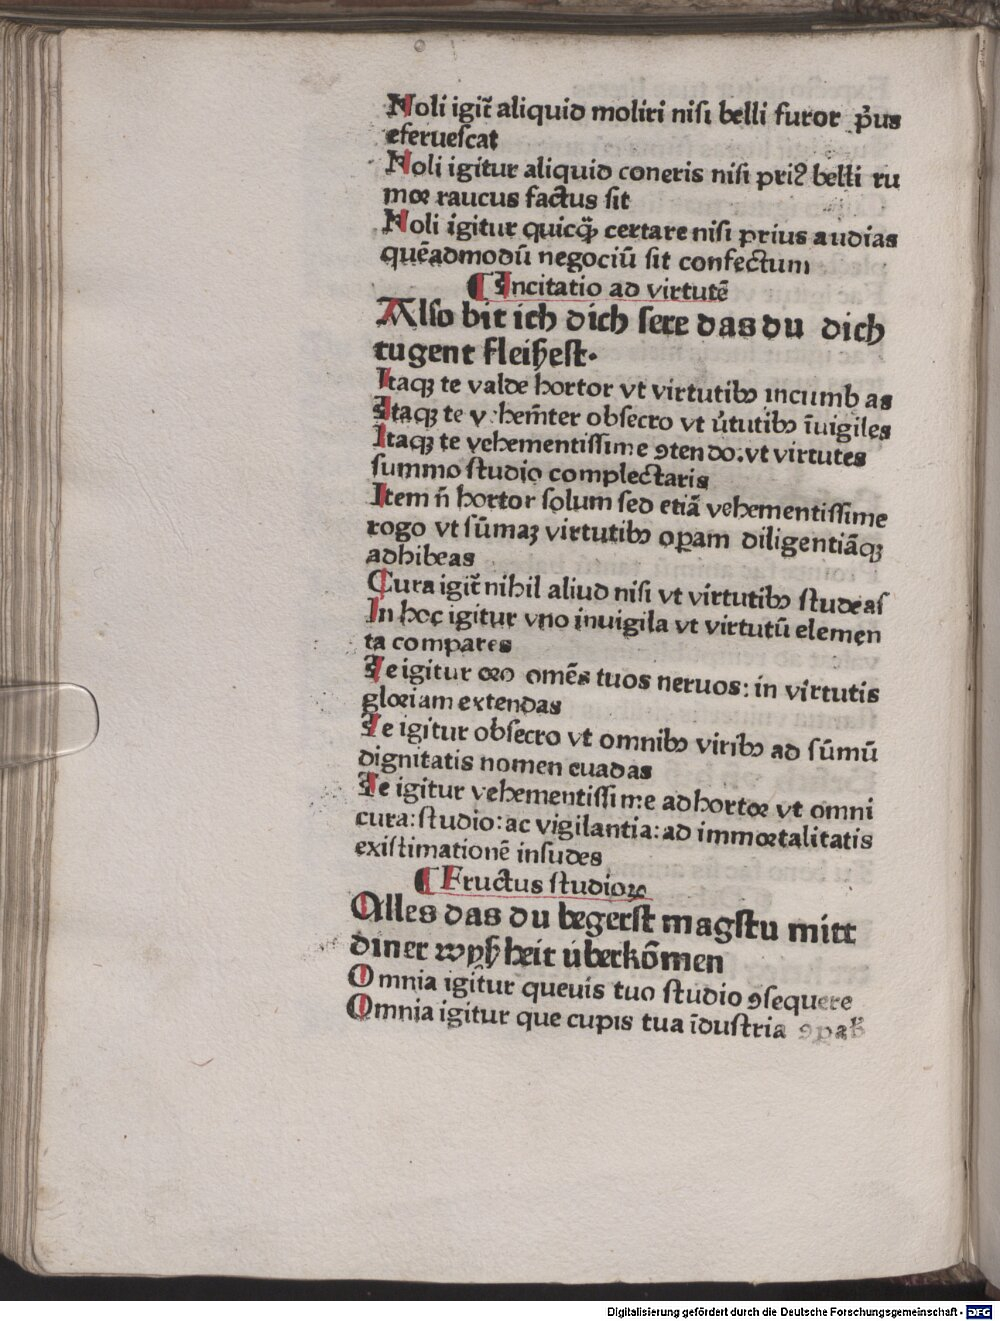 Noli igit̃ aliquid moliri nisi belli furor p̃us
eferuescat
Noli igitur aliquid coneris nisi priꝰ belli ru
mor raucus factus sit
Noli igitur quicq̃ȝ certare nisi prius audias
quēadmodū negociū sit confectum
¶ Incitatio ad virtutē
Also bit ich dich sere das du dich
tugent fleihest.
Itaqȝ te valde hortor vt virtutibꝰ incumb as
Itaqȝ te v hem̃ter obsecro vt v̾tutibꝰ īuigiles
Itaqȝ te vehementissime ꝯtendo. vt virtutes
summo studio complectaris
Item ñ hortor solum sed etiā vehementissime
rogo vt sūmaȝ virtutibꝰ oꝑam diligentiāqȝ
adhibeas
Cura igit̃ nihil aliud nisi vt virtutibꝰ studeas
In hoc igitur vno inuigila vt virtutū elemen
ta compares
Te igitur oro omēs tuos neruos: in virtutis
gloriam extendas
Te igitur obsecro vt omnibꝰ viribꝰ ad sūmū
dignitatis nomen euadas
Te igitur vehementissime adhortor vt omni
cura: studio: ac vigilantia: ad immortalitatis
existimationē insudes
¶ Fructus studioꝝ
Alles das du begerst magstu mitt
diner wyßheit überkōmen
Omnia igitur queuis tuo studio ꝯsequere
Omnia igitur que cupis tua īdustria
Digitalisierung gefördert durch die Deutsche Forschungsgemeinschaft - DFG